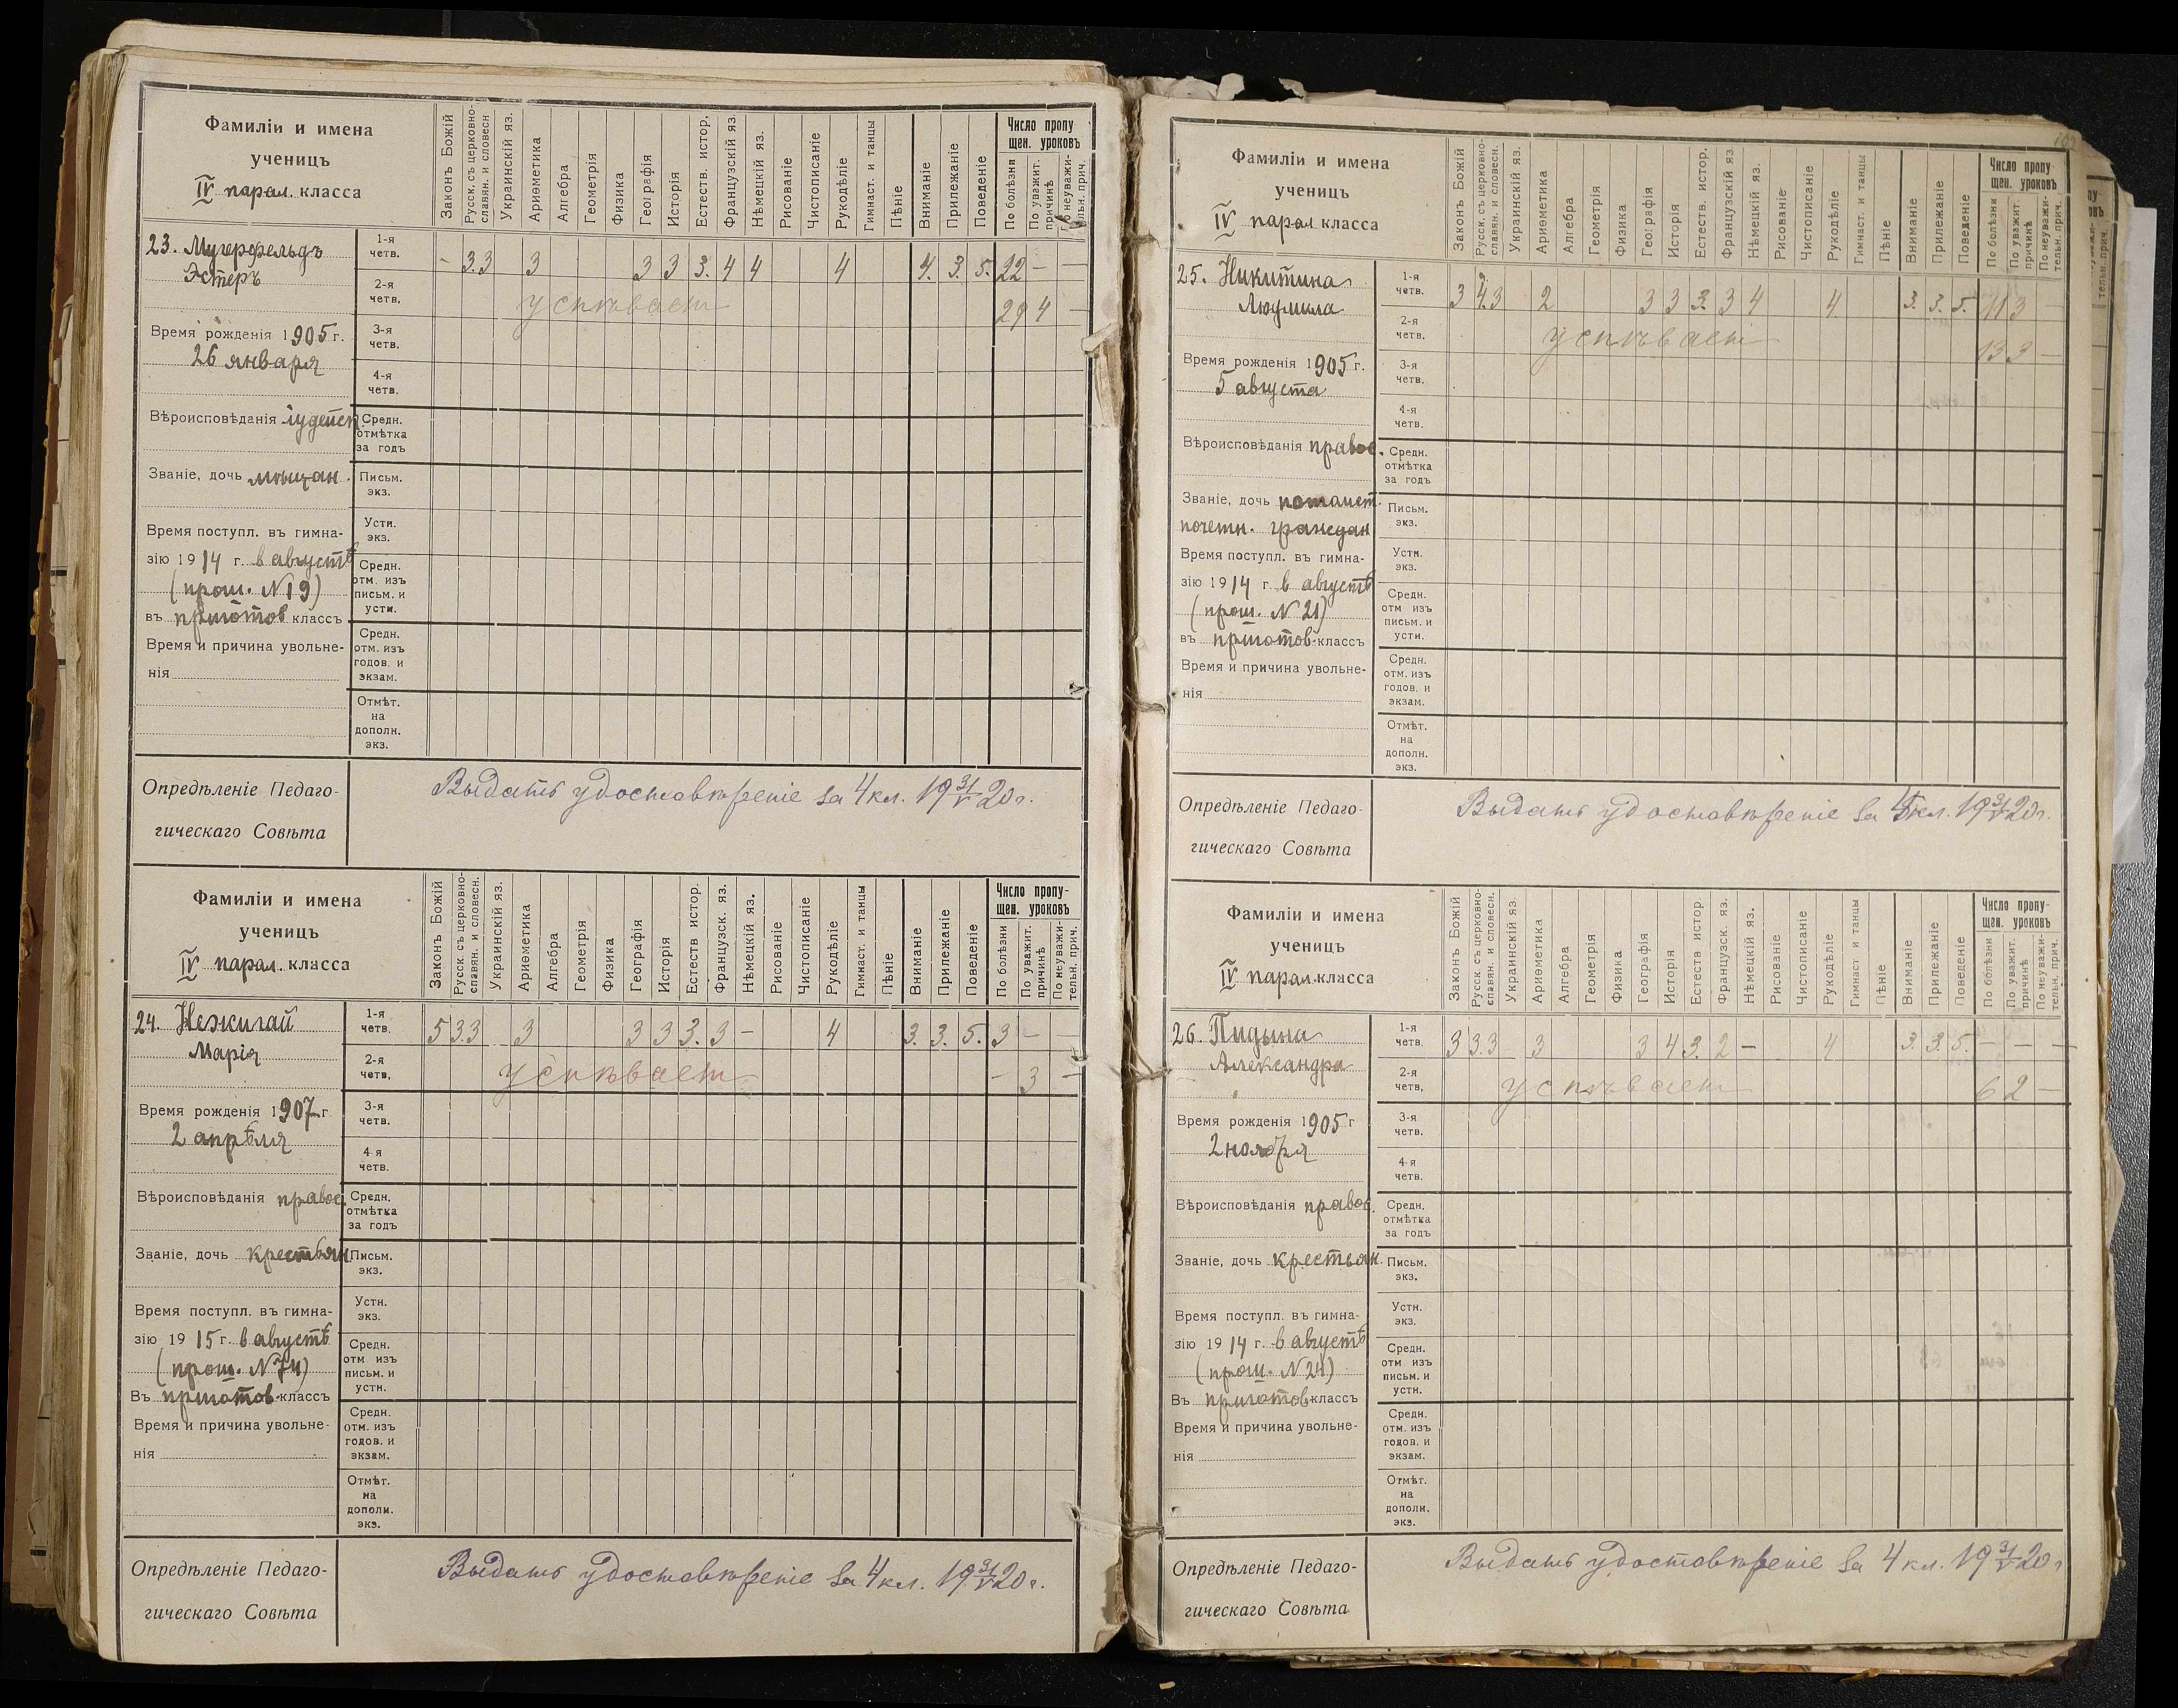 Фамиліи и имена
ученицъ
IV парал. класса
Законъ Божій
Русск. съ церковно-
славян. и словесн
Украинскій яз.
Ариѳметика
Алгебра
Геометрія
Физика
Географія
Исторія
Естеств. истор.
Французскій яз.
Нѣмецкій яз.
Рисованіе
Чистописаніе
Рукодѣліе
Гимнаст. и танцы
Пѣніе
Вниманіе
Прилежаніе
Поведеніе
Число пропу
щен. уроковъ
По болѣзни
По уважит.
причинѣ
По неуважи-
тельн. прич.
23.
Эстеръ
1-я
четв.
- 3.3 3 3 3 3. 4 4 4 4. 3. 5. 22 - -
2-я
четв.
успѣваетъ 29 4 -
Время рожденія 1905 г.
26 января
3-я
четв.
4-я
четв.
Вѣроисповѣданія іудейск
Средн.
отмѣтка
за годъ
Званіе, дочь мѣщан.
Письм.
экз.
Время поступл. въ гимна-
зію 1914 г. в августѣ
(прош. №19)
въ приготов классъ
Устн.
экз.
Средн.
отм. изъ
письм. и
устн.
Время и причина увольне-
нія
Средн.
отм. изъ
годов. и
экзам.
Отмѣт.
на
дополн.
экз.
Опредѣленіе Педаго-
гическаго Совѣта
Выдать удостовѣреніе за 4 кл. 19 31/V 20 г.
Фамиліи и имена
ученицъ
IV парал. класса
Законъ Божій
Русск. съ церковно-
славян. и словесн.
Украинскій яз.
Ариѳметика
Алгебра
Геометрія
Физика
Географія
Исторія
Естеств истор.
Французск. яз.
Нѣмецкій яз.
Рисованіе
Чистописаніе
Рукодѣліе
Гимнаст. и танцы
Пѣніе
Вниманіе
Прилежаніе
Поведеніе
Число пропу-
щен. уроковъ
По болѣзни
По уважит.
причинѣ
По неуважи-
тельн. прич.
24. Нежигай
Марія
1-я
четв.
5 3.3 3 3 3 3. 3 - 4 3. 3. 5. 3 - -
2-я
четв,
успѣваетъ - 3 -
Время рожденія 1907 г
2 апрѣля
3-я
четв.
4-я
четв.
Вѣроисповѣданія правос.
Средн.
отмѣтка
за годъ
Званіе, дочь крестьян.
Письм.
экз.
Время поступл. въ гимна-
зію 1915 г. в августѣ
(прош. №74)
Въ приготов. классъ
Устн.
экз.
Средн.
отм изъ
письм. и
устн.
Время и причина увольне-
нія
Средн.
отм. изъ
годов. и
экзам.
Отмѣт.
на
дополн.
экз.
Опредѣленіе Педаго-
гическаго Совѣта
Выдать удостовѣреніе за 4 кл. 19 31/V 20 г.
Фамиліи и имена
ученицъ
IV парал класса
Законъ Божій
Русск. съ церковно-
славян. и словесн.
Украинскій яз.
Ариѳметика
Алгебра
Геометрія
Физика
Географія
Исторія
Естеств. истор.
Французскій яз
Нѣмецкій яз.
Рисованіе
Чистописаніе
Рукодѣліе
Гимнаст. и танцы
Пѣніе
Вниманіе
Прилежаніе
Поведеніе
Число пропу-
щен. уроковъ
По болѣзни
По уважит
причинѣ
По неуважи-
тельн. прич.
25. Никитина
Людмила
1-я
четв.
3 4.3 2 3 3 3. 3 4 4. 3. 3. 5. 11 3 -
2-я
четв.
успѣваетъ 13 3 -
Время рожденія 1905 г.
5 августа
3-я
четв.
4-я
четв.
Вѣроисповѣданія правос.
Средн.
отмѣтка
за годъ
Званіе, дочь потомст.
почетн. граждан
Письм.
экз.
Время поступл. въ гимна-
зію 1914 г. в августѣ
(прош. № 21)
въ приготов. классъ
Устн.
экз.
Средн.
отм изъ
письм. и
устн.
Время и причина увольне-
нія
Средн.
отм. изъ
годов. и
экзам.
Отмѣт.
на
дополн.
экз.
Опредѣленіе Педаго-
гическаго Совѣта
Выдать удостовѣреніе за 4 кл. 19 31/V 20 г.
Фамиліи и имена
ученицъ
IV парал. класса
Законъ Божій
Русск. съ церковно-
славян. и словесн.
Украинскій яз.
Ариѳметика
Алгебра
Геометрія
Физика
Географія
Исторія
Естеств истор
Французск. яз.
Нѣмецкій яз.
Рисованіе
Чистописаніе
Рукодѣліе
Гимнаст и танцы
Пѣніе
Вниманіе
Прилежаніе
Поведеніе
Число пропу-
щен. уроковъ
По болѣзни
По уважит.
причинѣ
По неуважи-
тельн. прич.
26.
Александра
1-я
четв.
3 3.3 3 3 4 3. 2 - 4 3. 3. 5. - - -
2-я
четв,
успѣваетъ 6 2 -
Время рожденія 1905 г
2 ноября
3-я
четв.
4 я
четв.
Вѣроисповѣданія правос.
Средн.
отмѣтка
за годъ
Званіе, дочь крестьян.
Письм.
экз.
Время поступл. въ гимна-
зію 1914 г. в августѣ
(прош. №24)
Въ приготов классъ
Устн.
экз.
Средн.
отм изъ
письм. и
устн.
Время и причина увольне-
нія
Средн.
отм. изъ
годов. и
экзам.
Отмѣт.
на
дополн.
экз.
Опредѣленіе Педаго-
гическаго Совѣта
Выдать удостовѣреніе за 4 кл. 19 31/V 20 г